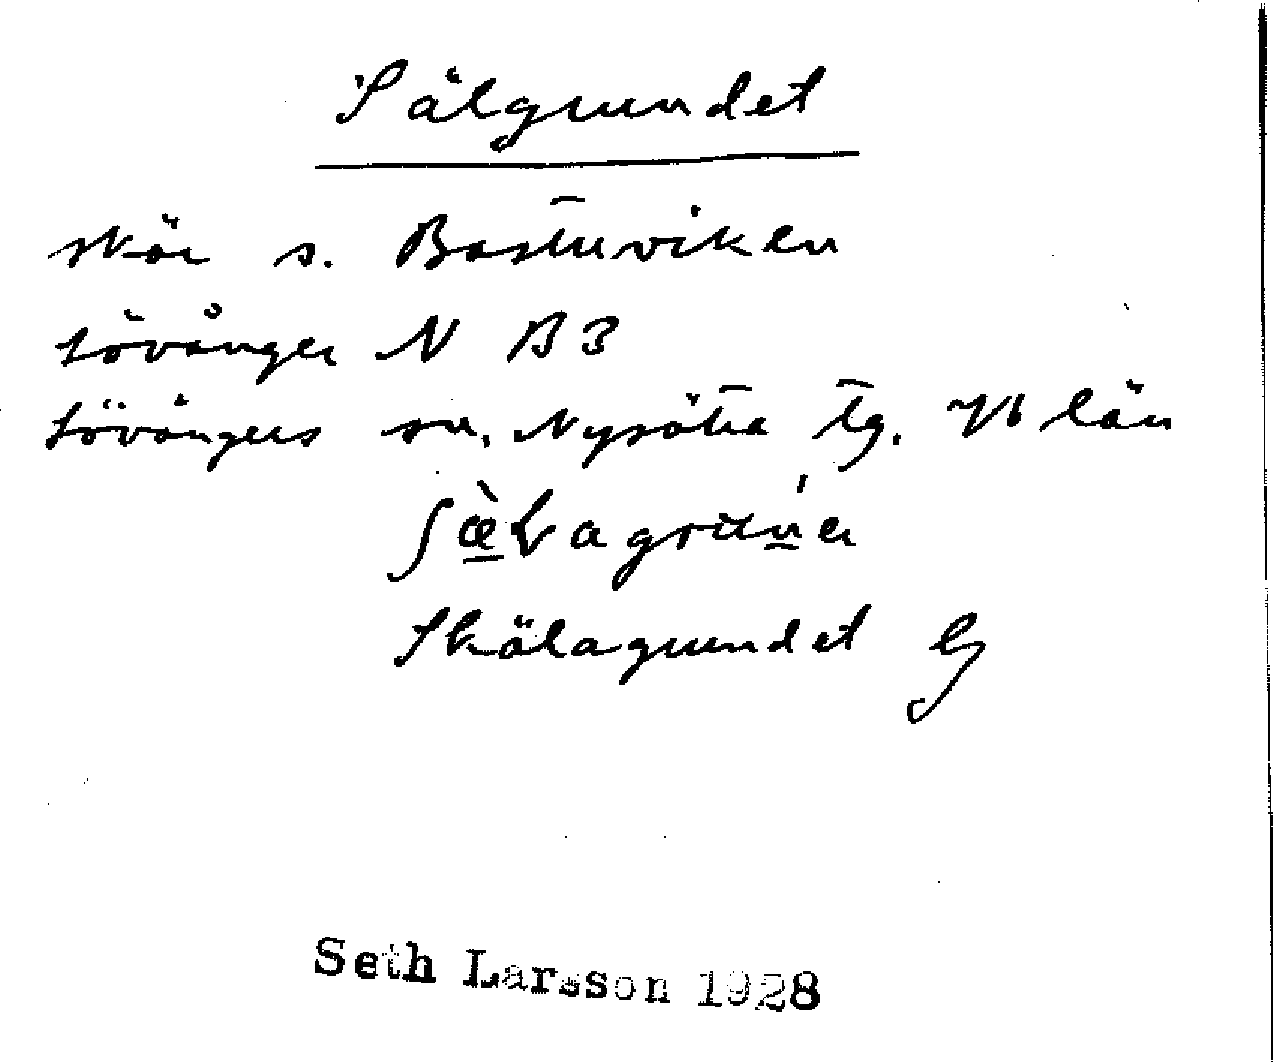 Sälgrundet
skär s. Bastuviken
Lövånger N B3
Lövångers sn. Nysätra tg. Vb län
Skälagrundet G
Seth Larsson 1928